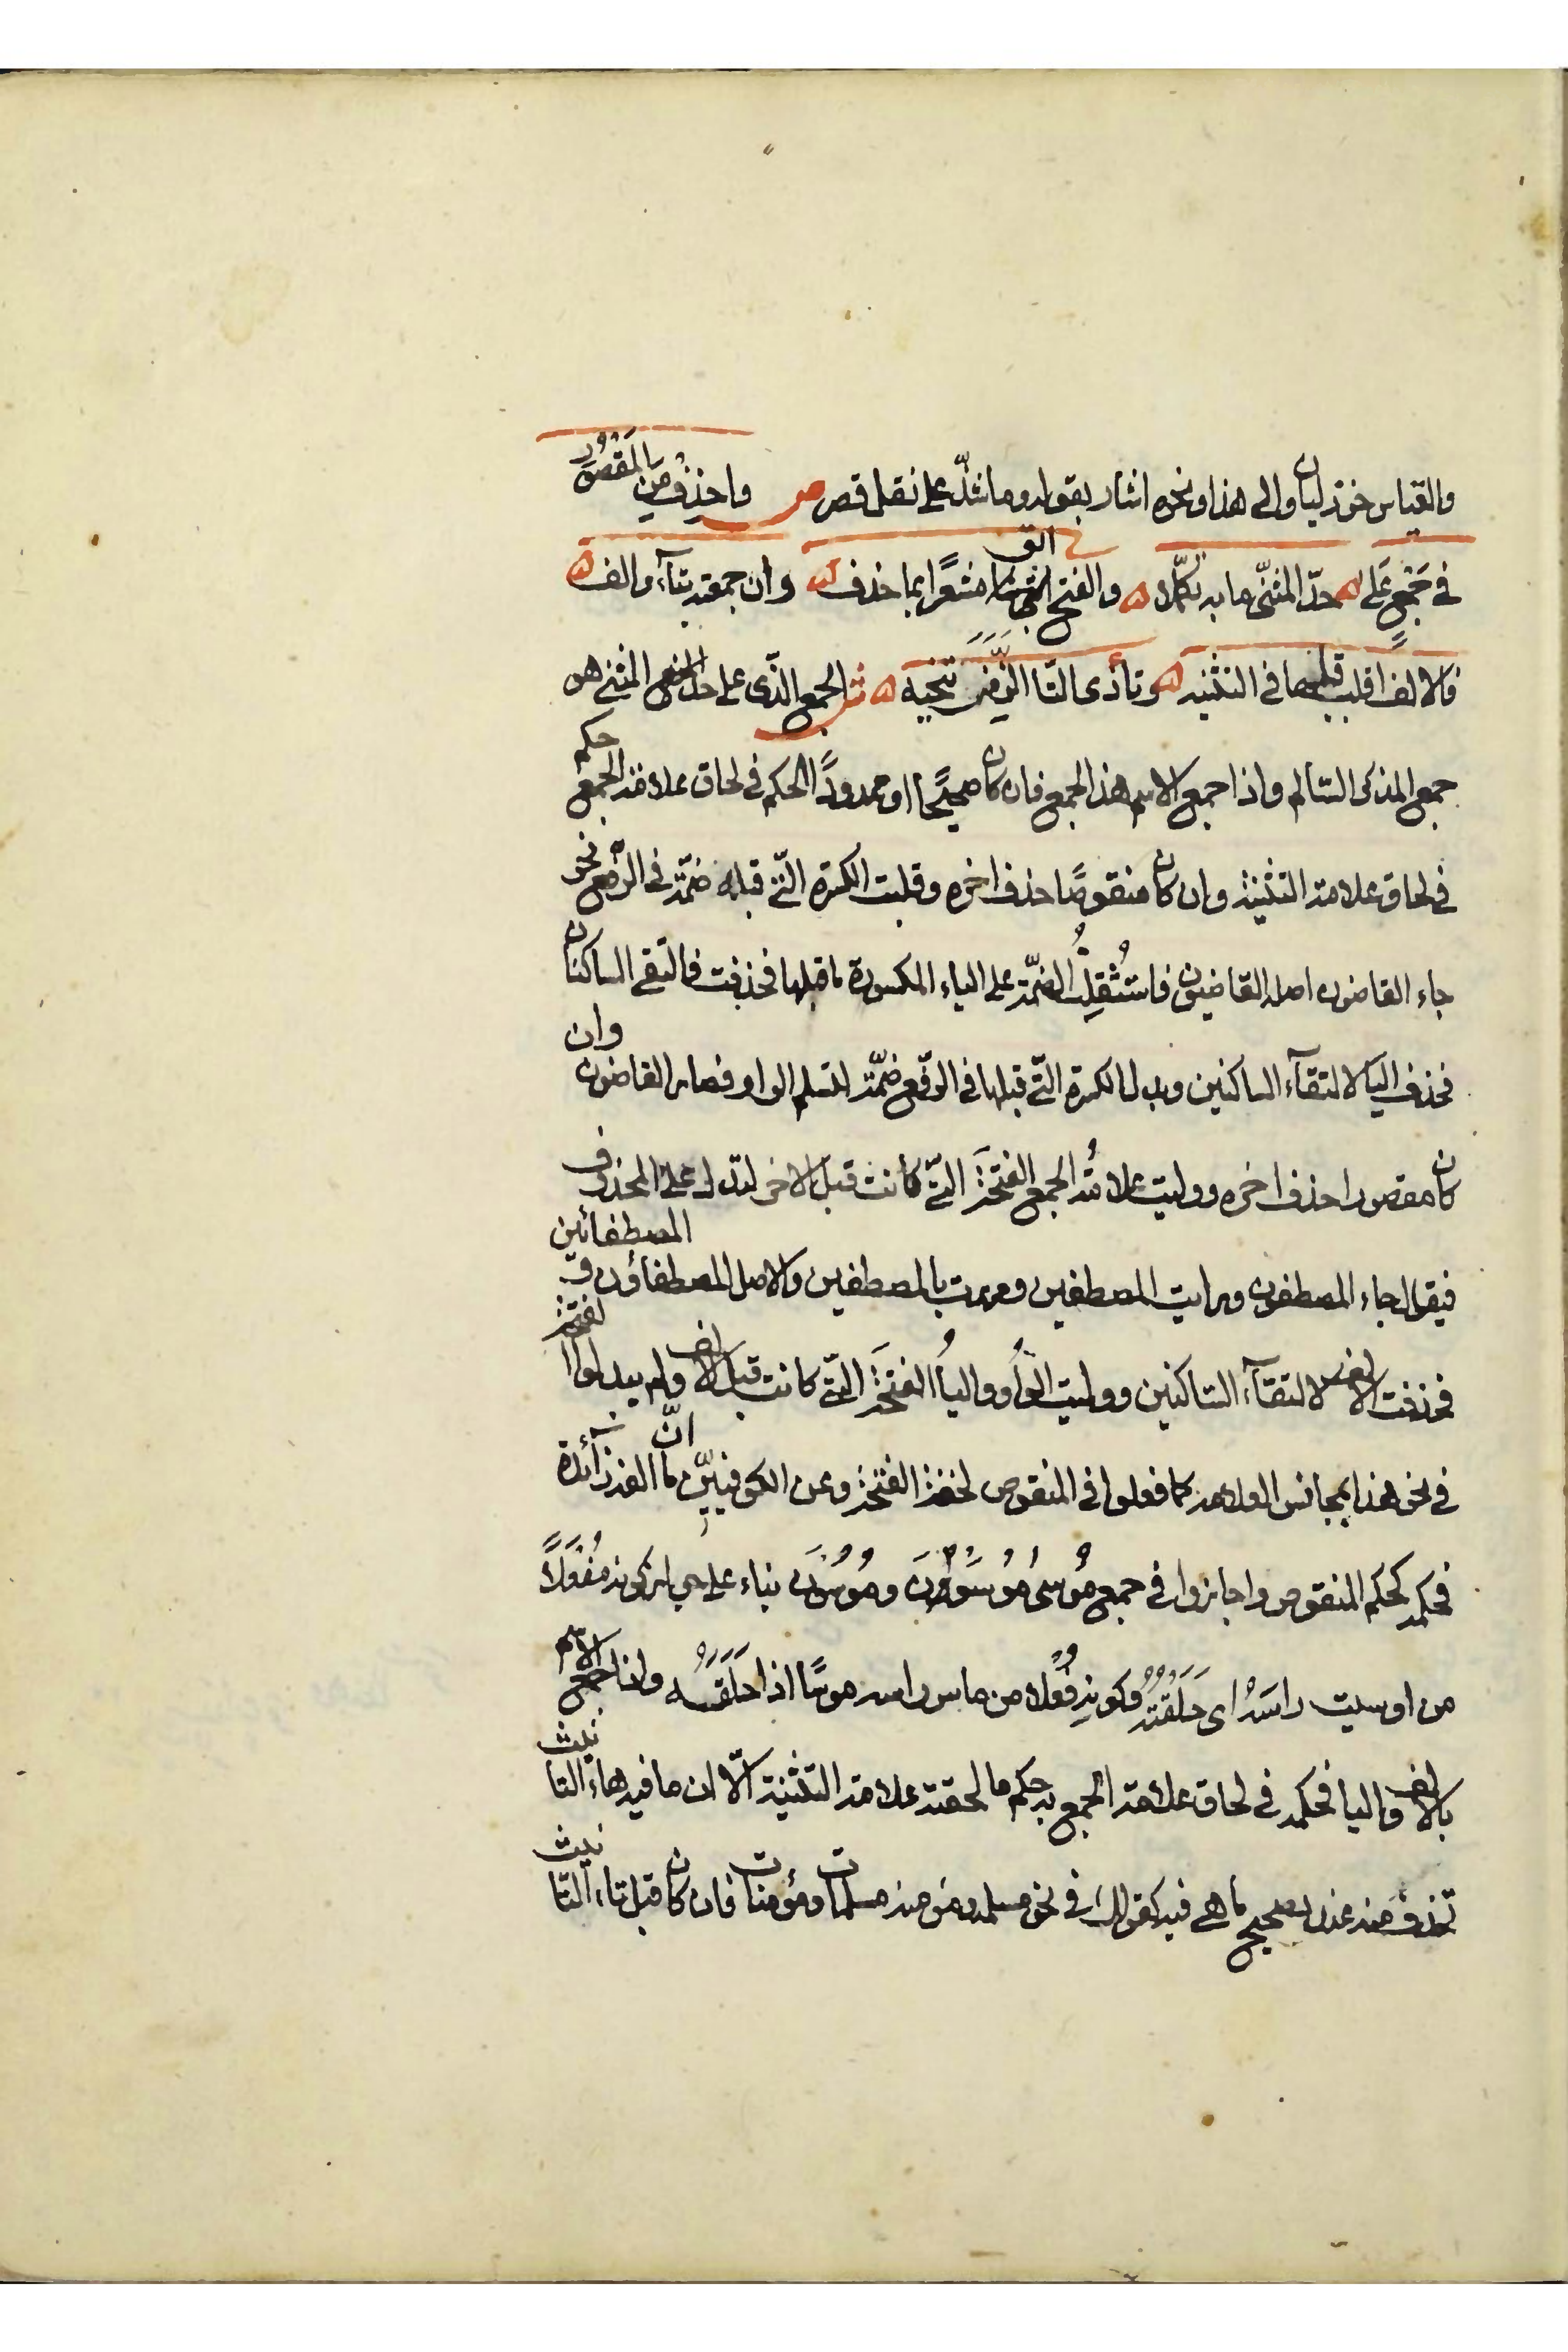 والقياس خوزليان والى هذا ونحوه اشار بقوله وما شذّ على نقل قصر ص واحذف من المَقصُور
فى جَمْعٍ عَلى حدّ المثنّى ما به تكمّلا والفتح ابق مشعرًا بما حذف وان جمعته بتآء والف
فالالف اقلب قلبها فى التثنيه وتأ ذى التا الزِمَنَّ تنحيه ش الجمع الذّى على حد المثنى هو
جمع المذكر السّالم واذا جمع الاسم هذ الجمع فان كان صحيحًا او ممدودًا الحكم فى لحاق علامة الجمع حكم
فى لحاق علامة التثنية وان كان منقوصًا حذف اخره وقلبت الكسرة التّى قبله ضمّة فى الرفع نحو
جاء القاضون اصله القاضيون فاستُثقِلَتُ الضمّة على الياء المكسورة ما قبلها فحذفت فالتقى الساكنان
فحذف اليا لالتقآء الساكنين وبدلا الكسرة التّى قبلها فى الرّفع ضمّة لتسلم الواو فصار القاضون وان
كان مقصورا حذف اخره ووليت علامتُه الجمع الفتحَة التّى كانت قبل الاخر لتدل على المحذوف
فيقال جاء المصطفون ورايت المصطفين ومررت بالمصطفين والاصل المصطفاؤن و المصطفائين
فحذفت الالف لالتقآء السّاكنين ووليت الواوُ والياُ الفتحَة التّى كانت قبل الالف ولم يبدلوا الفتحة
فى نحو هذا بمجانس العلامة كما فعلوا فى المنقوص لخفة الفتحة وعن الكوفيّين انّ ما الفه زآئدة
فحكمه كحكم المنقوص واجازوا فى جمع مُوسىٰ مُوسَوْنَ ومُوسُونَ بناء على جواز كونه مُفْعَلاً
من اوسيت راسَهْ اى حَلَقْتُهُ وكونِهِ فُعْلا من ماس راسه موسًا اذا حَلَقَهُ واذا جمع الاسم
بالالف والتا فحكمه فى لحاق علامة الجمع به حكم ما لحقته علامة التثنية الاّ ان ما فيه هاء التانيث
تحذف منه عند تصحيح ما هى فيه كقولك فى نحو مسلمة ومؤمنة مسلمات ومؤمنات فان كان قبل تاء التّانيث